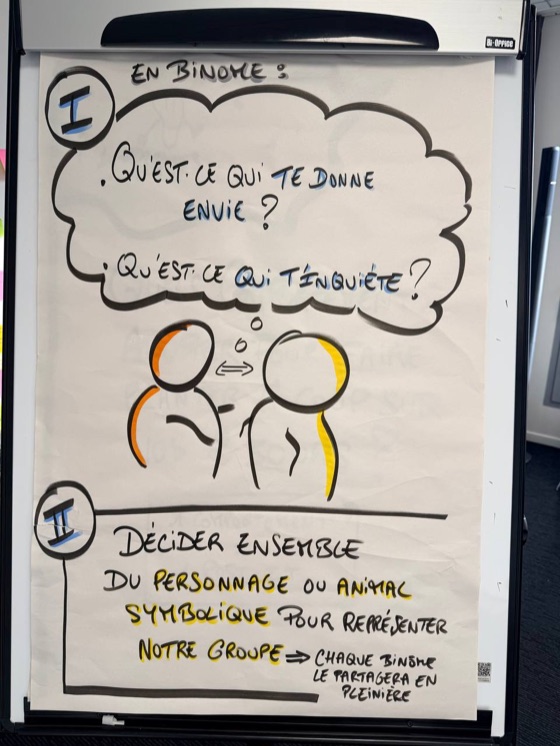 Bi-Office
I
EN BINOME :
. QU'EST-CE QUI TE DONNE
ENVIE ?
. QU'EST-CE QUI T'INQUIÉTE ?
II
DÉCIDER ENSEMBLE
DU PERSONNAGE OU ANIMAL
SYMBOLIQUE POUR REPRÉSENTER
NOTRE GROUPE ⇒ CHAQUE BINOME
LE PARTAGERA EN
PLEINIÈRE